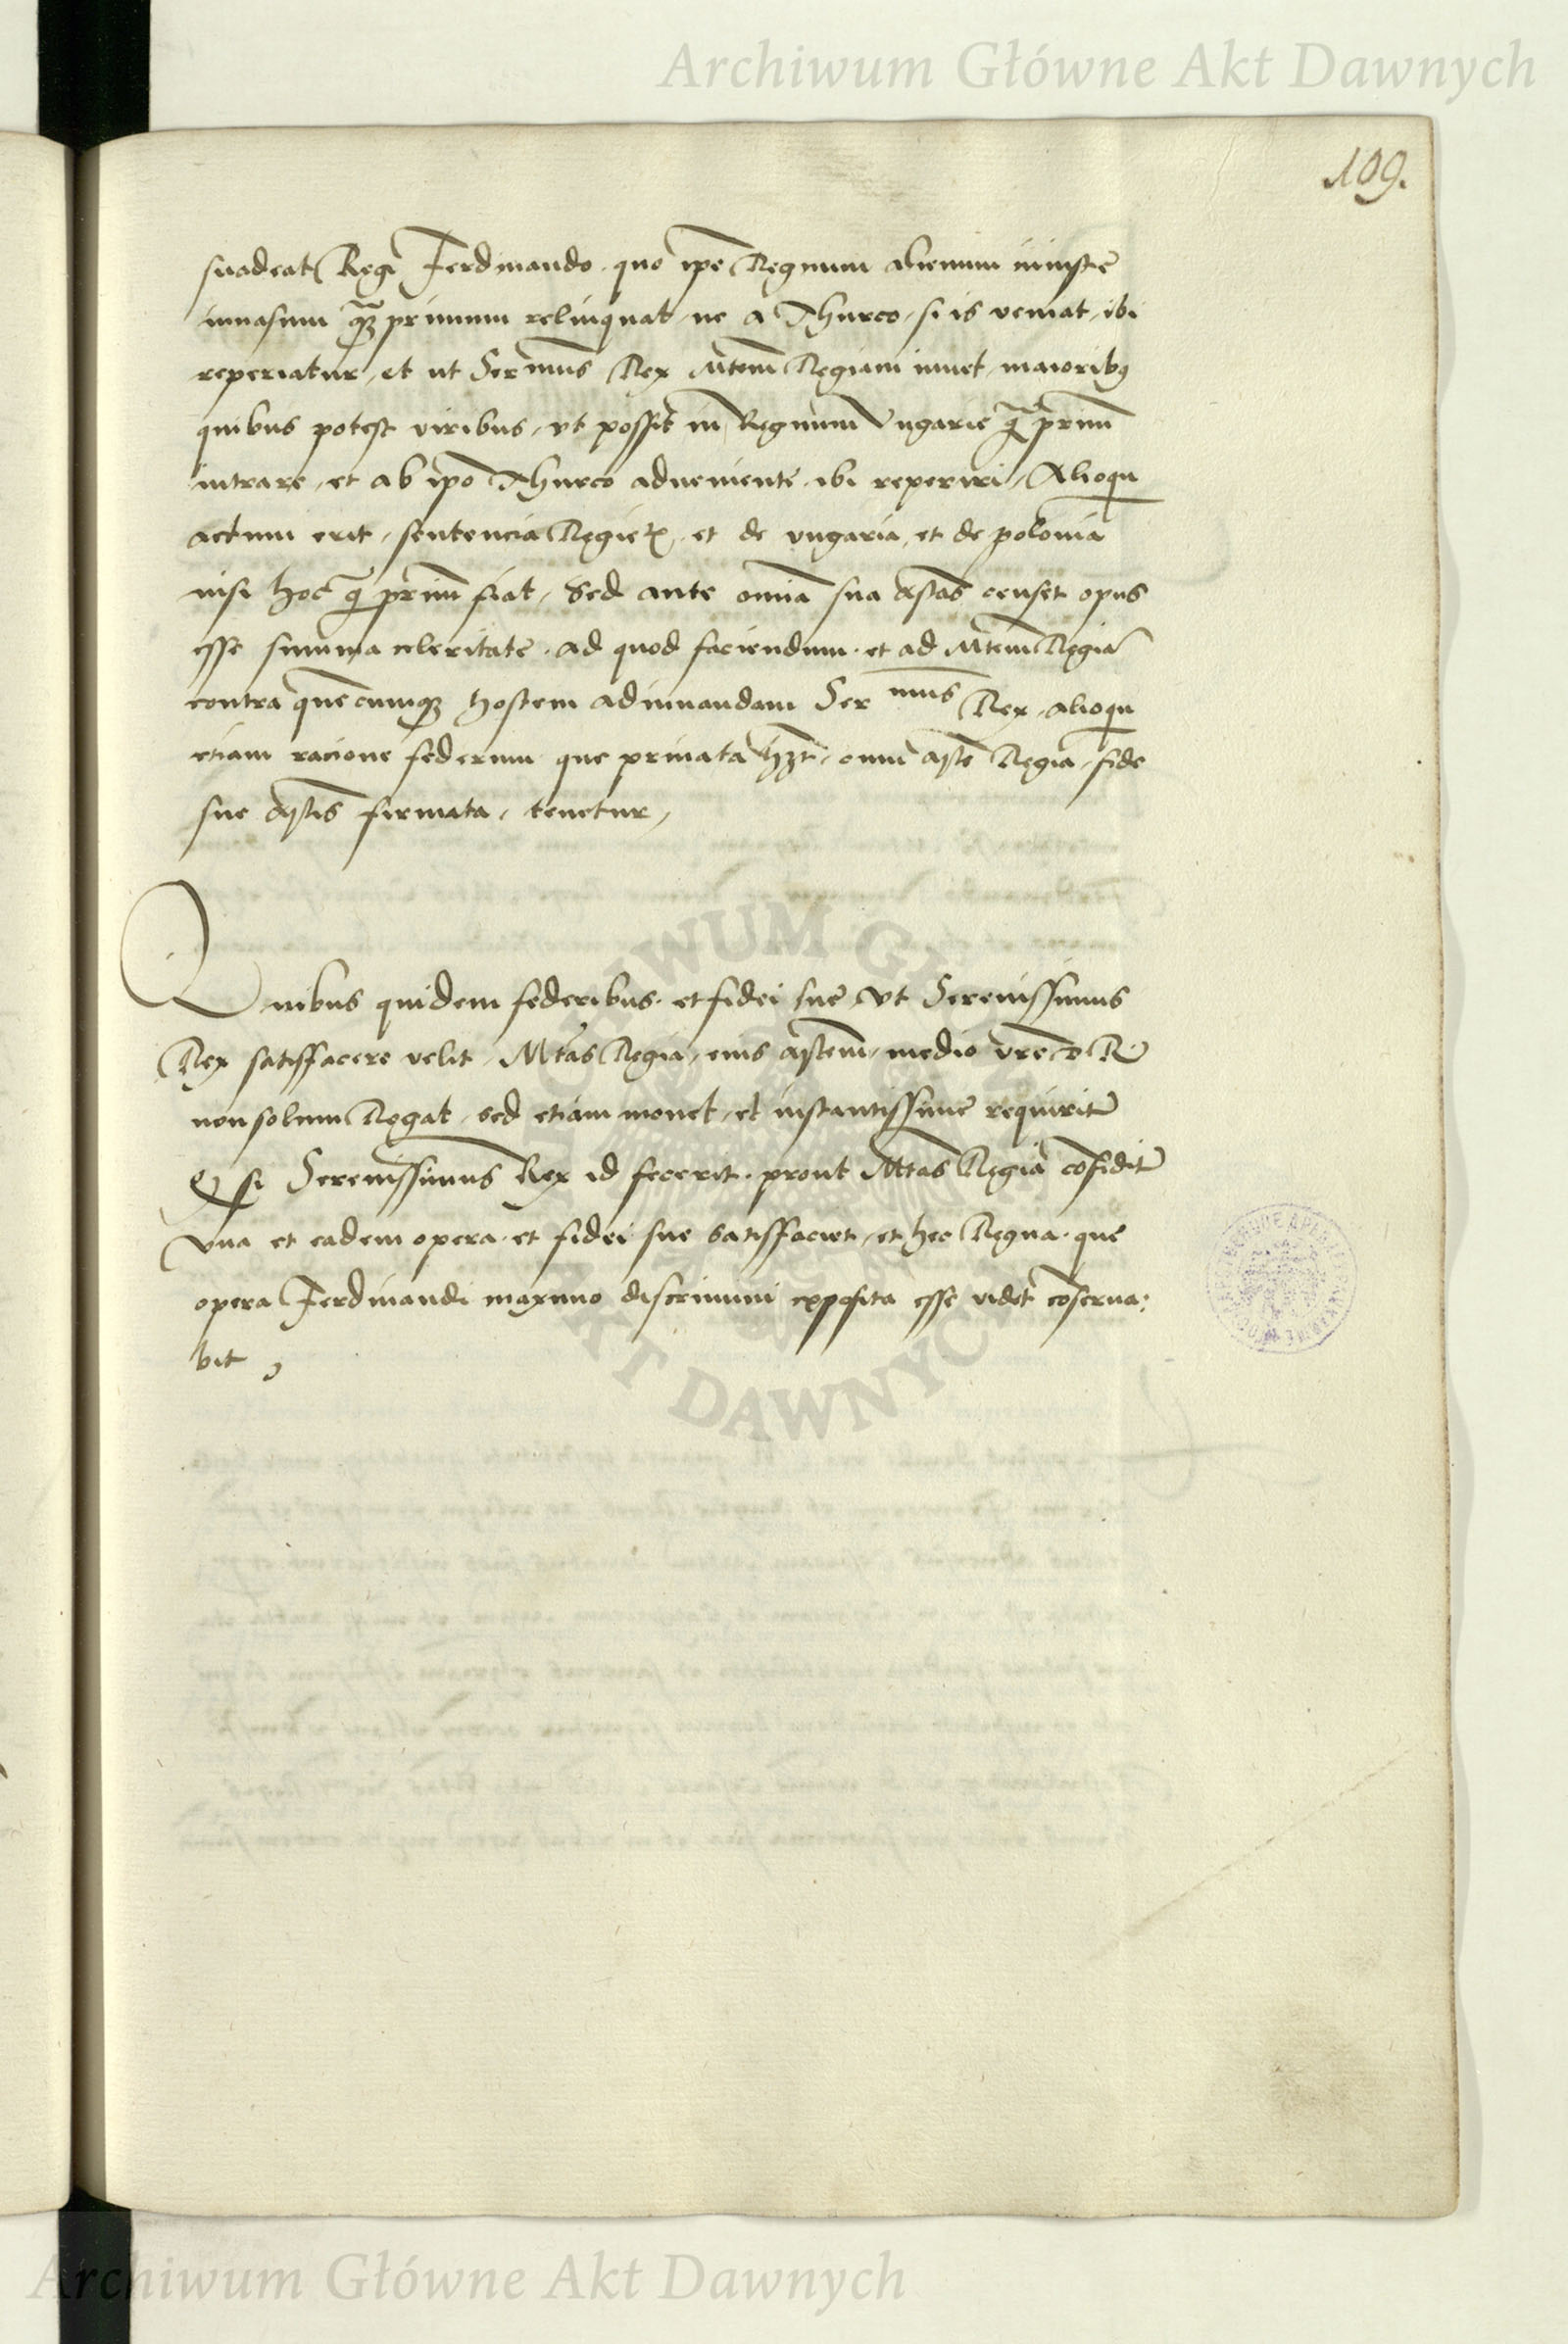 Archiwum Główne Akt Dawnych
109.
suadeat Regi Ferdinando. quo ipē Regnum alienum iniuste
inuasum q̃ȝ primum relinquat, ne a Thurco, si is veniat, ibi
reperiatur, et ut Serᵐᵘˢ Rex Mtem̄ Regiam iuuet, maioribꝰ
quibus potest viribus, vt possit in Regnum Vngarie q̃ primū
intrare, et ab ipō Thurco adueniente, ibi reperiri, Alioqu
actum erit, sentencia Regie, et de vngaria, et de polonia
nisi hoc q̃ primū fiat, Sed ante omīa sua censet opus
esse summa celeritate, ad quod faciendum, et ad Mtem̄ Regiā
contra quēcumqȝ hostem adiuuandam Ser ᵐᵘˢ Rex, alioqu
etiam racione federum que priuata hȝt, cum Regia, fide
sue firmata, tenetur,
Quibus quidem federibus, et fidei sue vt Serenissimus
Rex satisfacere velit, Mtas Regia, eius medio vrē
non solum Rogat, sed etiam monet, et instantissime requirit
si Serenissimus Rex id fecerit, prout Mtas Regia cōfidit
vna et eadem opera, et fidei sue satisfaciet, et hec Regna, que
opera Ferdinandi maximo discrimini exposita esse videt cōserua:
bit,
ARCHIWUM GŁ AKT DAWNYCH
Archiwum Główne Akt Dawnych